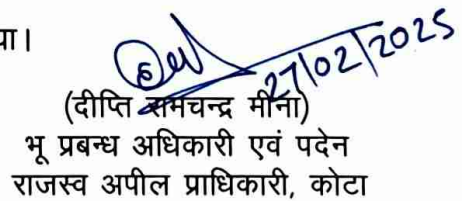 या।
27/02/2025
(दीप्ति रामचन्द्र मीना)
भू प्रबन्ध अधिकारी एवं पदेन
राजस्व अपील प्राधिकारी, कोटा